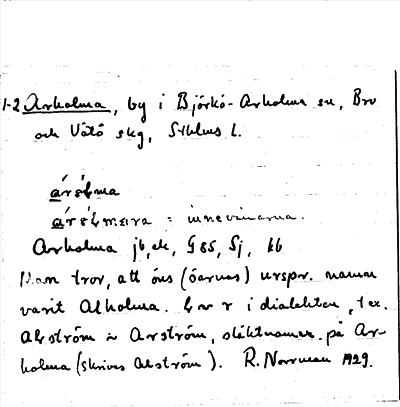 1-2 Arholma, by i Björkö-Arholma sn, Bro
och Vätö skg, Sthlms l.
árɘƚma
árɘƚmɐɩra : innevånarna.
Arholma jb, ek, G 85, Sj, kb
Man tror, att öns (öarnas) urspr. namn
varit Alholma. l > r i dialekten, t ex.
Alström > Arström, släktnamn på Ar-
holma (skrives Alström). R. Norrman 1929.